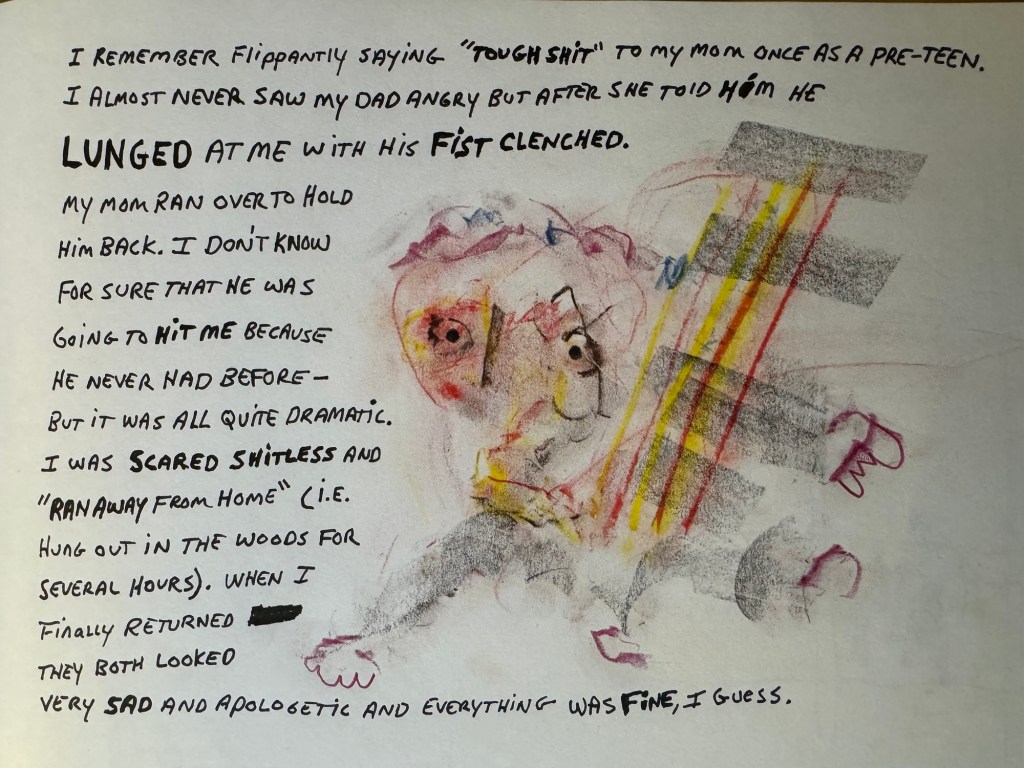 I REMEMBER FLIPPANTLY SAYING "TOUGH SHIT" TO MY MOM ONCE AS A PRE-TEEN.
I ALMOST NEVER SAW MY DAD ANGRY BUT AFTER SHE TOLD HIM HE
LUNGED AT ME WITH HIS FIST CLENCHED.
MY MOM RAN OVER TO HOLD
HIM BACK. I DON'T KNOW
FOR SURE THAT HE WAS
GOING TO HIT ME BECAUSE
HE NEVER HAD BEFORE –
BUT IT WAS ALL QUITE DRAMATIC.
I WAS SCARED SHITLESS AND
"RAN AWAY FROM HOME" (I.E.
HUNG OUT IN THE WOODS FOR
SEVERAL HOURS). WHEN I
FINALLY RETURNED
THEY BOTH LOOKED
VERY SAD AND APOLOGETIC AND EVERYTHING WAS FINE, I GUESS.